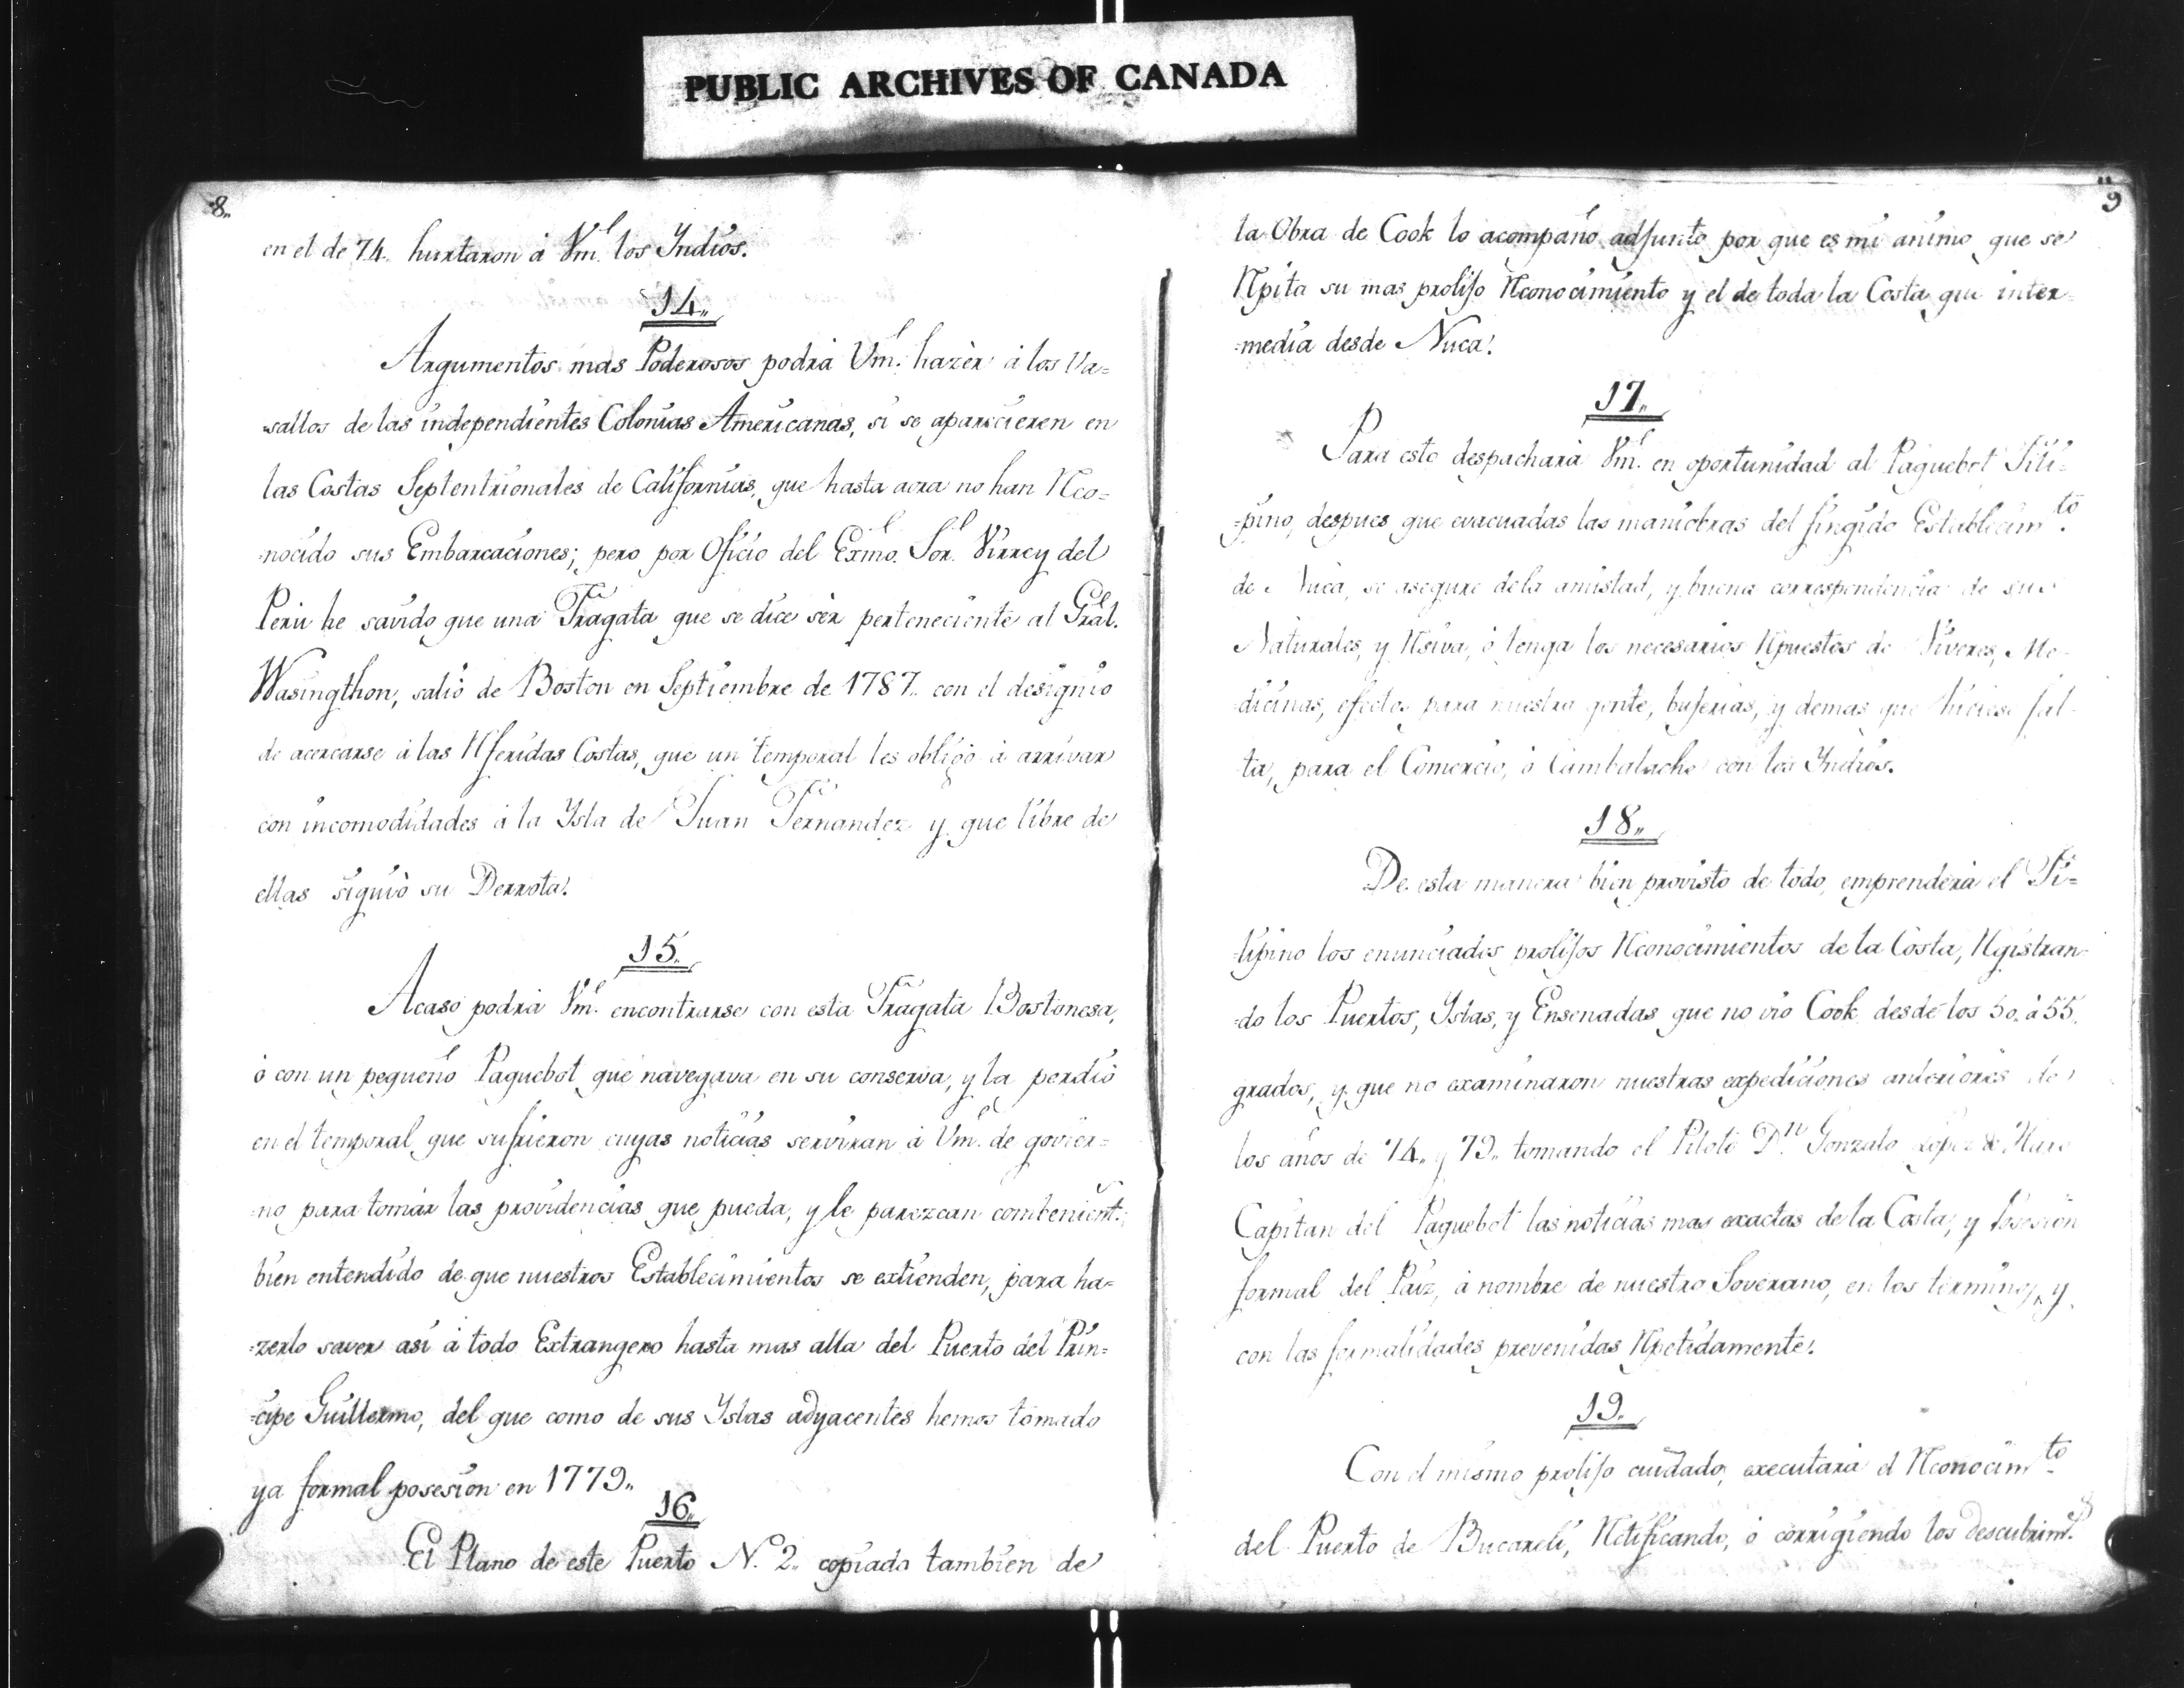 PUBLIC ARCHIVES OF CANADA
8.,
en el de 74. hurtaron á Vm. los Yndios.
14.,
Argumentos mas Poderosos podrá Vm. hazèr á los Va=
=sallos de las independientes Colonias Americanas, si se aparecieren en
las Costas Septentrionales de Californias, que hasta aora no han Reco=
=nocido sus Embarcaciones; pero por Oficio del Exmo. Sor. Virrey del
Perú he savido que una Fragata que se dice sèr perteneciente al Gral.
Wasingthon, salió de Boston en Septiembre de 1787., con el designio
de acercarse á las Referidas Costas, que un temporal les obligó á arrivar
con incomodidades á la Ysla de Juan Fernandez y que libre de
ellas siguió su Derrota.
15.,
Acaso podrá Vm. encontrarse con esta Fragata Bostonesa,
ó con un pequeño Paquebot que navegava en su conserva, y la perdió
en el temporal que sufrieron cuyas noticias serviran á Vm. de govier=
=no para tomar las providencias que pueda, y le parezcan combenient.
bien entendido de que nuestros Establecimientos se extienden, para ha=
=zerlo saver asi á todo Extrangero hasta mas alla del Puerto del Prin=
=cipe Guillermo, del que como de sus Yslas adyacentes hemos tomado
ya formal posesion en 1779.,
16.,
El Plano de este Puerto N.º 2., copiado tambien de
9
la Obra de Cook lo acompaño adjunto por que es mi animo que se
Repita su mas prolijo Reconocimiento y el de toda la Costa que inter=
=media desde Nuca.
17.,
Para esto despachará Vm. en oportunidad al Paquebot Fili=
=pino, despues que evacuadas las maniobras del fingido Establecim.to
de Nuca, se asegure de la amistad, y buena correspondencia de sus
Naturales, y Reciva, ó tenga los necesarios Repuestos de Viveres, Me=
=dicinas, efectos para nuestra gente, bujerias, y demas que hiciese fal=
ta, para el Comercio, ó Cambalache con los Yndios.
18.,
De esta manera bien provisto de todo, emprenderá el Fi=
=lipino los enunciados prolijos Reconocimientos de la Costa, Registran=
=do los Puertos, Yslas, y Ensenadas que no vio Cook desde los 50. á 55.
grados, y que no examinaron nuestras expediciones anteriores de
los años de 74., y 79., tomando el Piloto D.n Gonzalo Lopez de Haro
Capitan del Paquebot las noticias mas exactas de la Costa, y Posesion
formal del Paiz, á nombre de nuestro Soverano, en los terminos, y
con las formalidades prevenidas Repetidamente.
19.,
Con el mismo prolijo cuidado, executará el Reconocim.to
del Puerto de Bucareli, Retificando, ó corrigiendo los descubrim.s